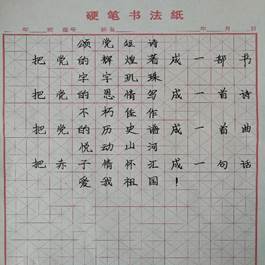 硬笔书法纸
颂党组诗
把党的辉煌著成一部书
字字玑珠
把党的恩情写成一首诗
不朽佳作
把党的历史谱成一首曲
悦动山河
把赤子情怀汇成一句话
爱我祖国!